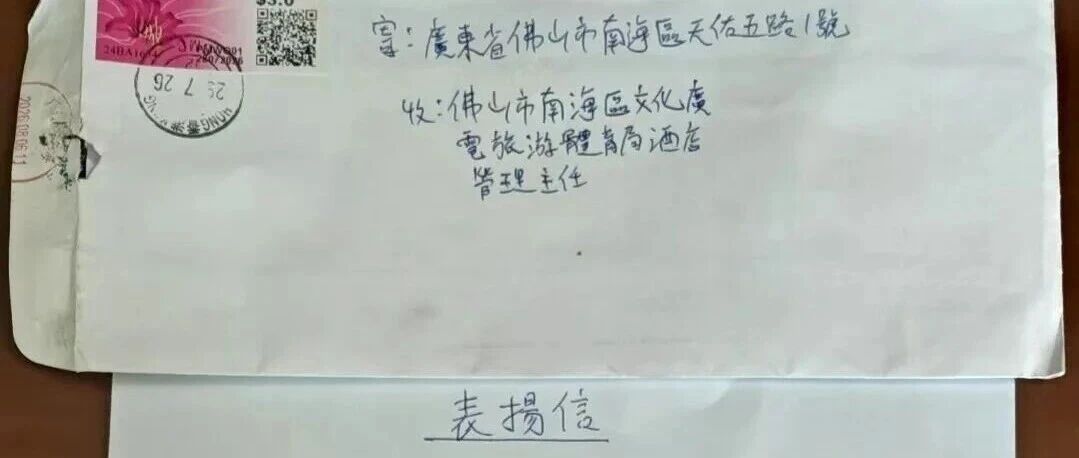 $3.0
寄：廣東省佛山市南海區天佑五路1號
收：佛山市南海區文化廣
電旅游體育局酒店
管理主任
7 26
HONG
表揚信